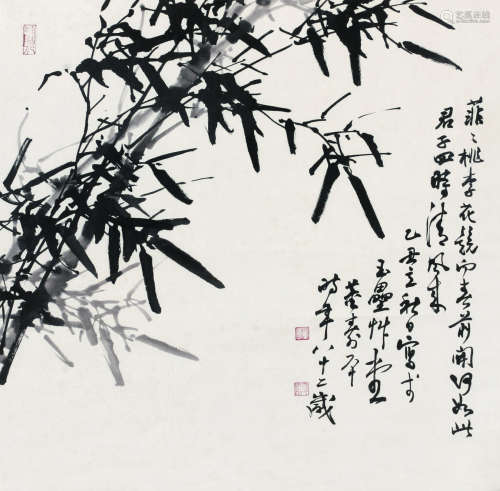 菲〻桃李花競向春前開何如此
君子四時清風來
乙丑立秋日寫于
玉壘草堂
董壽平
時年八十二歲